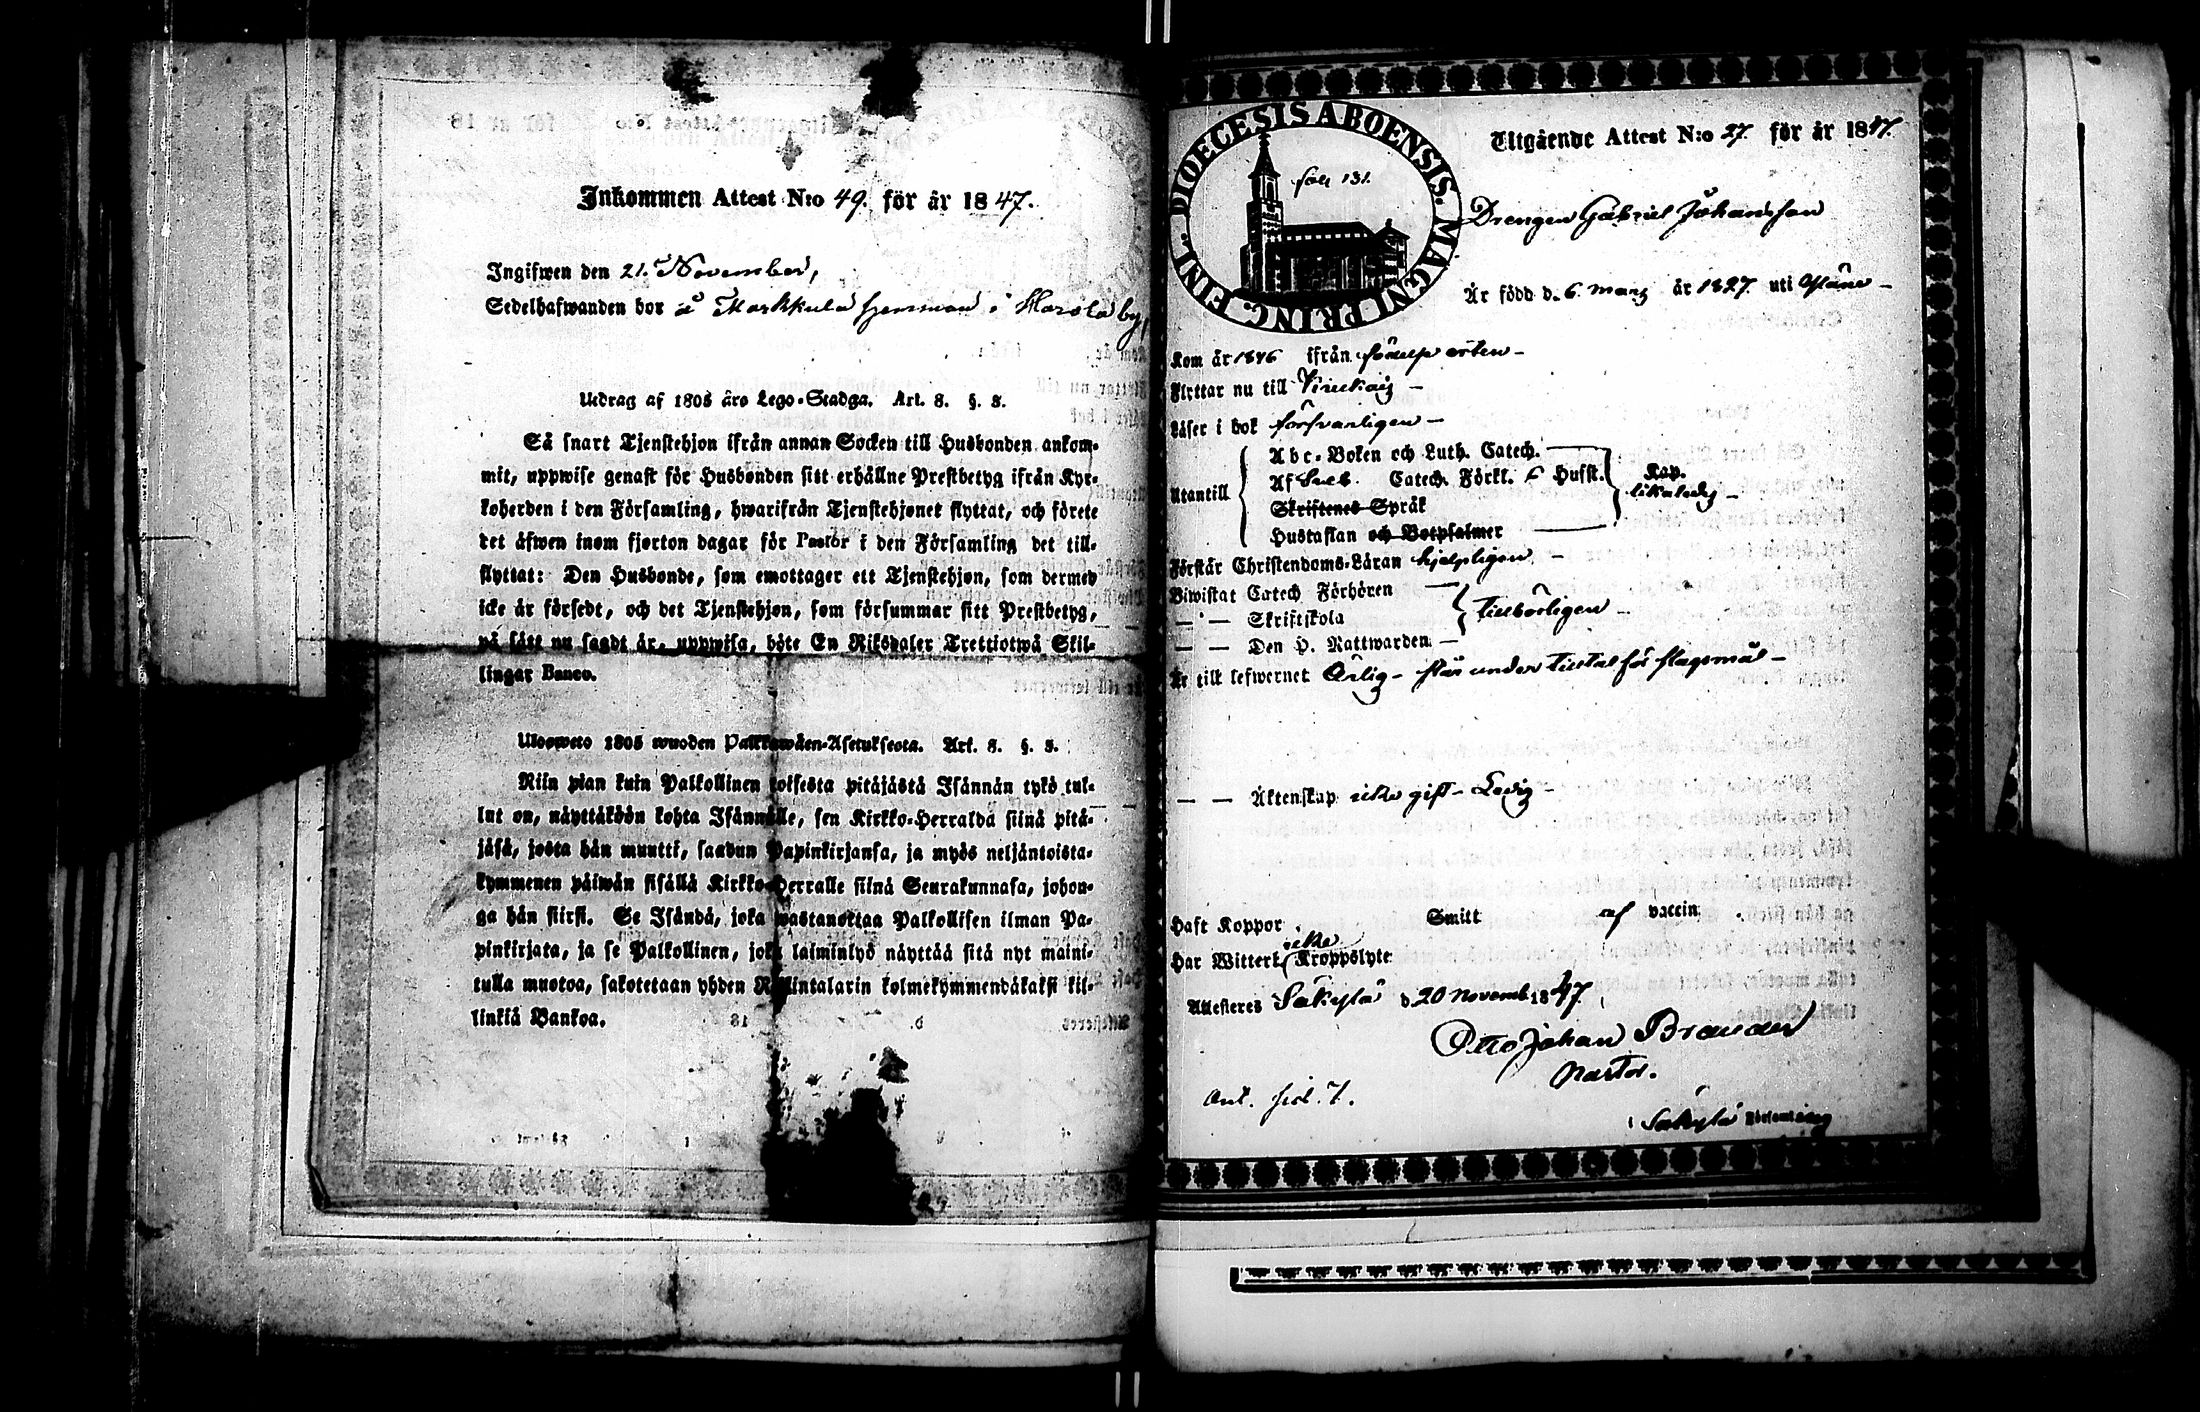 Inkommen Attest N:o 49. för år 1847.
Ingifwen den 21. November,
Sedelhafwanden bor å Markkula hemman i Harola by,
Utdrag af 1805 års Lego-Stadga. Art. 8. §. 8.
Så snart Tjenstehjon ifrån annan Socken till Husbonden ankom-
mit, uppwise genast för Husbonden sitt erhållne Prestbetyg ifrån Kyr-
koherden i den Församling, hwarifrån Tjenstehjonet flyttat, och förete
det äfwen inom fjorton dagar för Pastor i den Församling det till-
flyttat: Den Husbonde, som emottager ett Tjenstehjon, som dermed
icke är försedt, och det Tjenstehjon, som försummar sitt Prestbetyg,
på sätt nu sagdt är, uppwisa, böte En Riksdaler Trettiotwå Skil-
lingar Banco.
Ulosweto 1805 wuoden Palkkawäen-Asetuksesta. Art. 8. §. 8.
Niin pian kuin Palkollinen toisesta pitäjästä Isännän tykö tul-
lut on, näyttäköön kohta Isännälle, sen Kirkko-Herralda siinä pitä-
jäsä, josta hän muutti, saadun Papinkirjansa, ja myös neljäntoista-
kymmenen päiwän sisällä Kirkko-Herralle siinä Seurakunnasa, johon-
ga hän siirsi. Se Isändä, joka wastanottaa Palkollisen ilman Pa-
pinkirjata, ja se Palkollinen, joka laiminlyö näyttää sitä nyt maini-
tulla muotoa, sakotetaan yhden Riksintalarin kolmekymmendäkaksi kil-
linkiä Bankoa.
DIOECESIS ABOENSIS. MAGNI PRINC. FINL.
foli 131.
Utgående Attest N:o 27. för år 1847.
Drengen Gabriel Johansson
Är född d. 6. Mars år 1827. uti
Kom år 1846 ifrån födelseorten –
Flyttar nu till
Läser i bok försvarligen –
Abc-Boken och Luth. Catech.
Utantill Af Sveb. Catech. Förkl. 6 Hufst. Kap. likaledes –
Skriftenes Språk
Hustaflan och Botpsalmer
Förstår Christendoms-Läran hjelpligen –
Biwistat Catech Förhören
– – Skriftskola tillbörligen –
– – Den H. Nattwarden –
Är till lefwernet Ärlig – står under tilltal för slagsmål –
– – Äktenskap icke gift – Ledig –
Haft Koppor Smitt af vaccin
icke
Har Witterl. Kroppslyte
Attesteres Säkylä d 20 Novemb. 1847.
Otto Johan Brander
Pastor.
Ant. sid. 7.
i Säkylä Församling